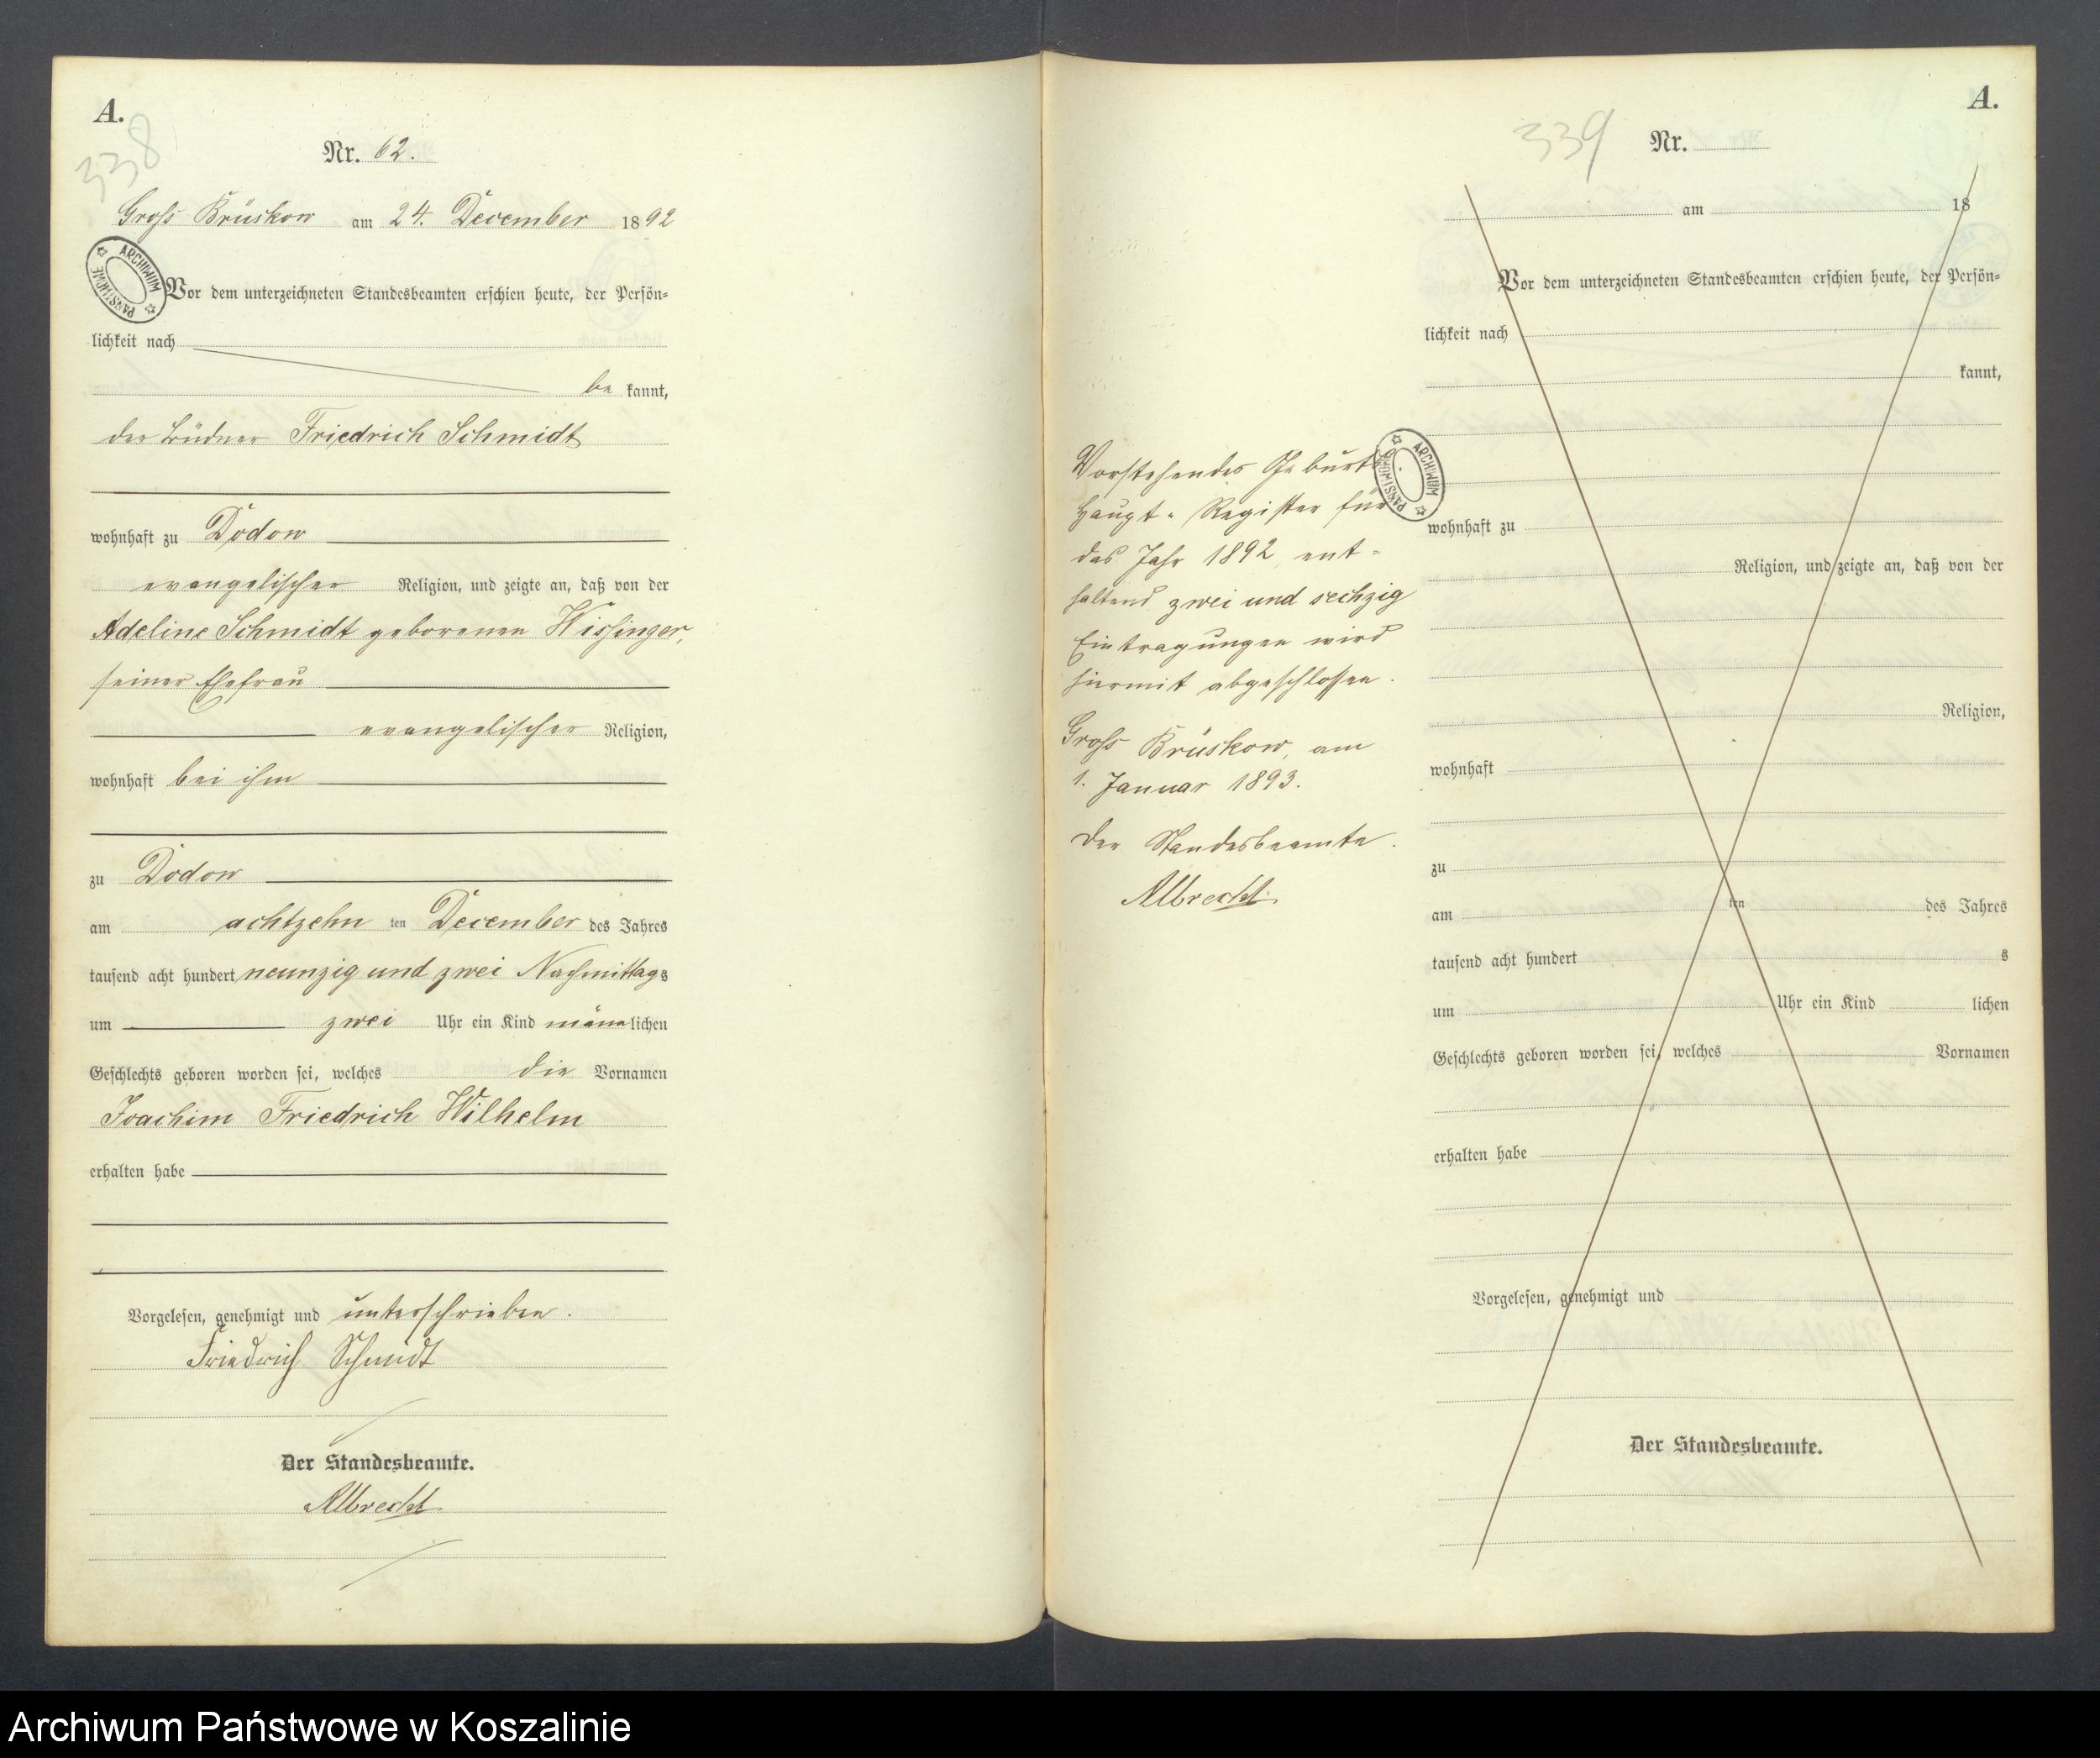 A.
338
Nr. 62.
Gross Brüskow am 24. December 1892
ARCHIWUM PAŃSTWOWE
Vor dem unterzeichneten Standesbeamten erschien heute, der Persön-
lichkeit nach
be kannt,
der Büdner Friedrich Schmidt
wohnhaft zu Dodow
evangelischer Religion, und zeigte an, daß von der
Adeline Schmidt geborenen Wissinger,
seiner Ehefrau
evangelischer Religion,
wohnhaft bei ihm
zu Dodow
am achtzehn ten December des Jahres
tausend acht hundert neunzig und zwei Nachmittags
um zwei Uhr ein Kind männlichen
Geschlechts geboren worden sei, welches die Vornamen
Joachim Friedrich Wilhelm
erhalten habe
Vorgelesen, genehmigt und unterschrieben.
Friedrich Schmidt
Der Standesbeamte.
Albrecht
Vorstehendes Geburts
Haupt-Register für
das Jahr 1892, ent-
haltend zwei und sechzig
Eintragungen wird
hiermit abgeschlossen.
Gross Brüskow, am
1. Januar 1893.
Der Standesbeamte.
Albrecht
ARCHIWUM PAŃSTWOWE
A.
339
Nr.
am 18
Vor dem unterzeichneten Standesbeamten erschien heute, der Persön-
lichkeit nach
kannt,
wohnhaft zu
Religion, und zeigte an, daß von der
Religion,
wohnhaft
zu
am ten des Jahres
tausend acht hundert s
um Uhr ein Kind lichen
Geschlechts geboren worden sei, welches Vornamen
erhalten habe
Vorgelesen, genehmigt und
Der Standesbeamte.
Archiwum Państwowe w Koszalinie